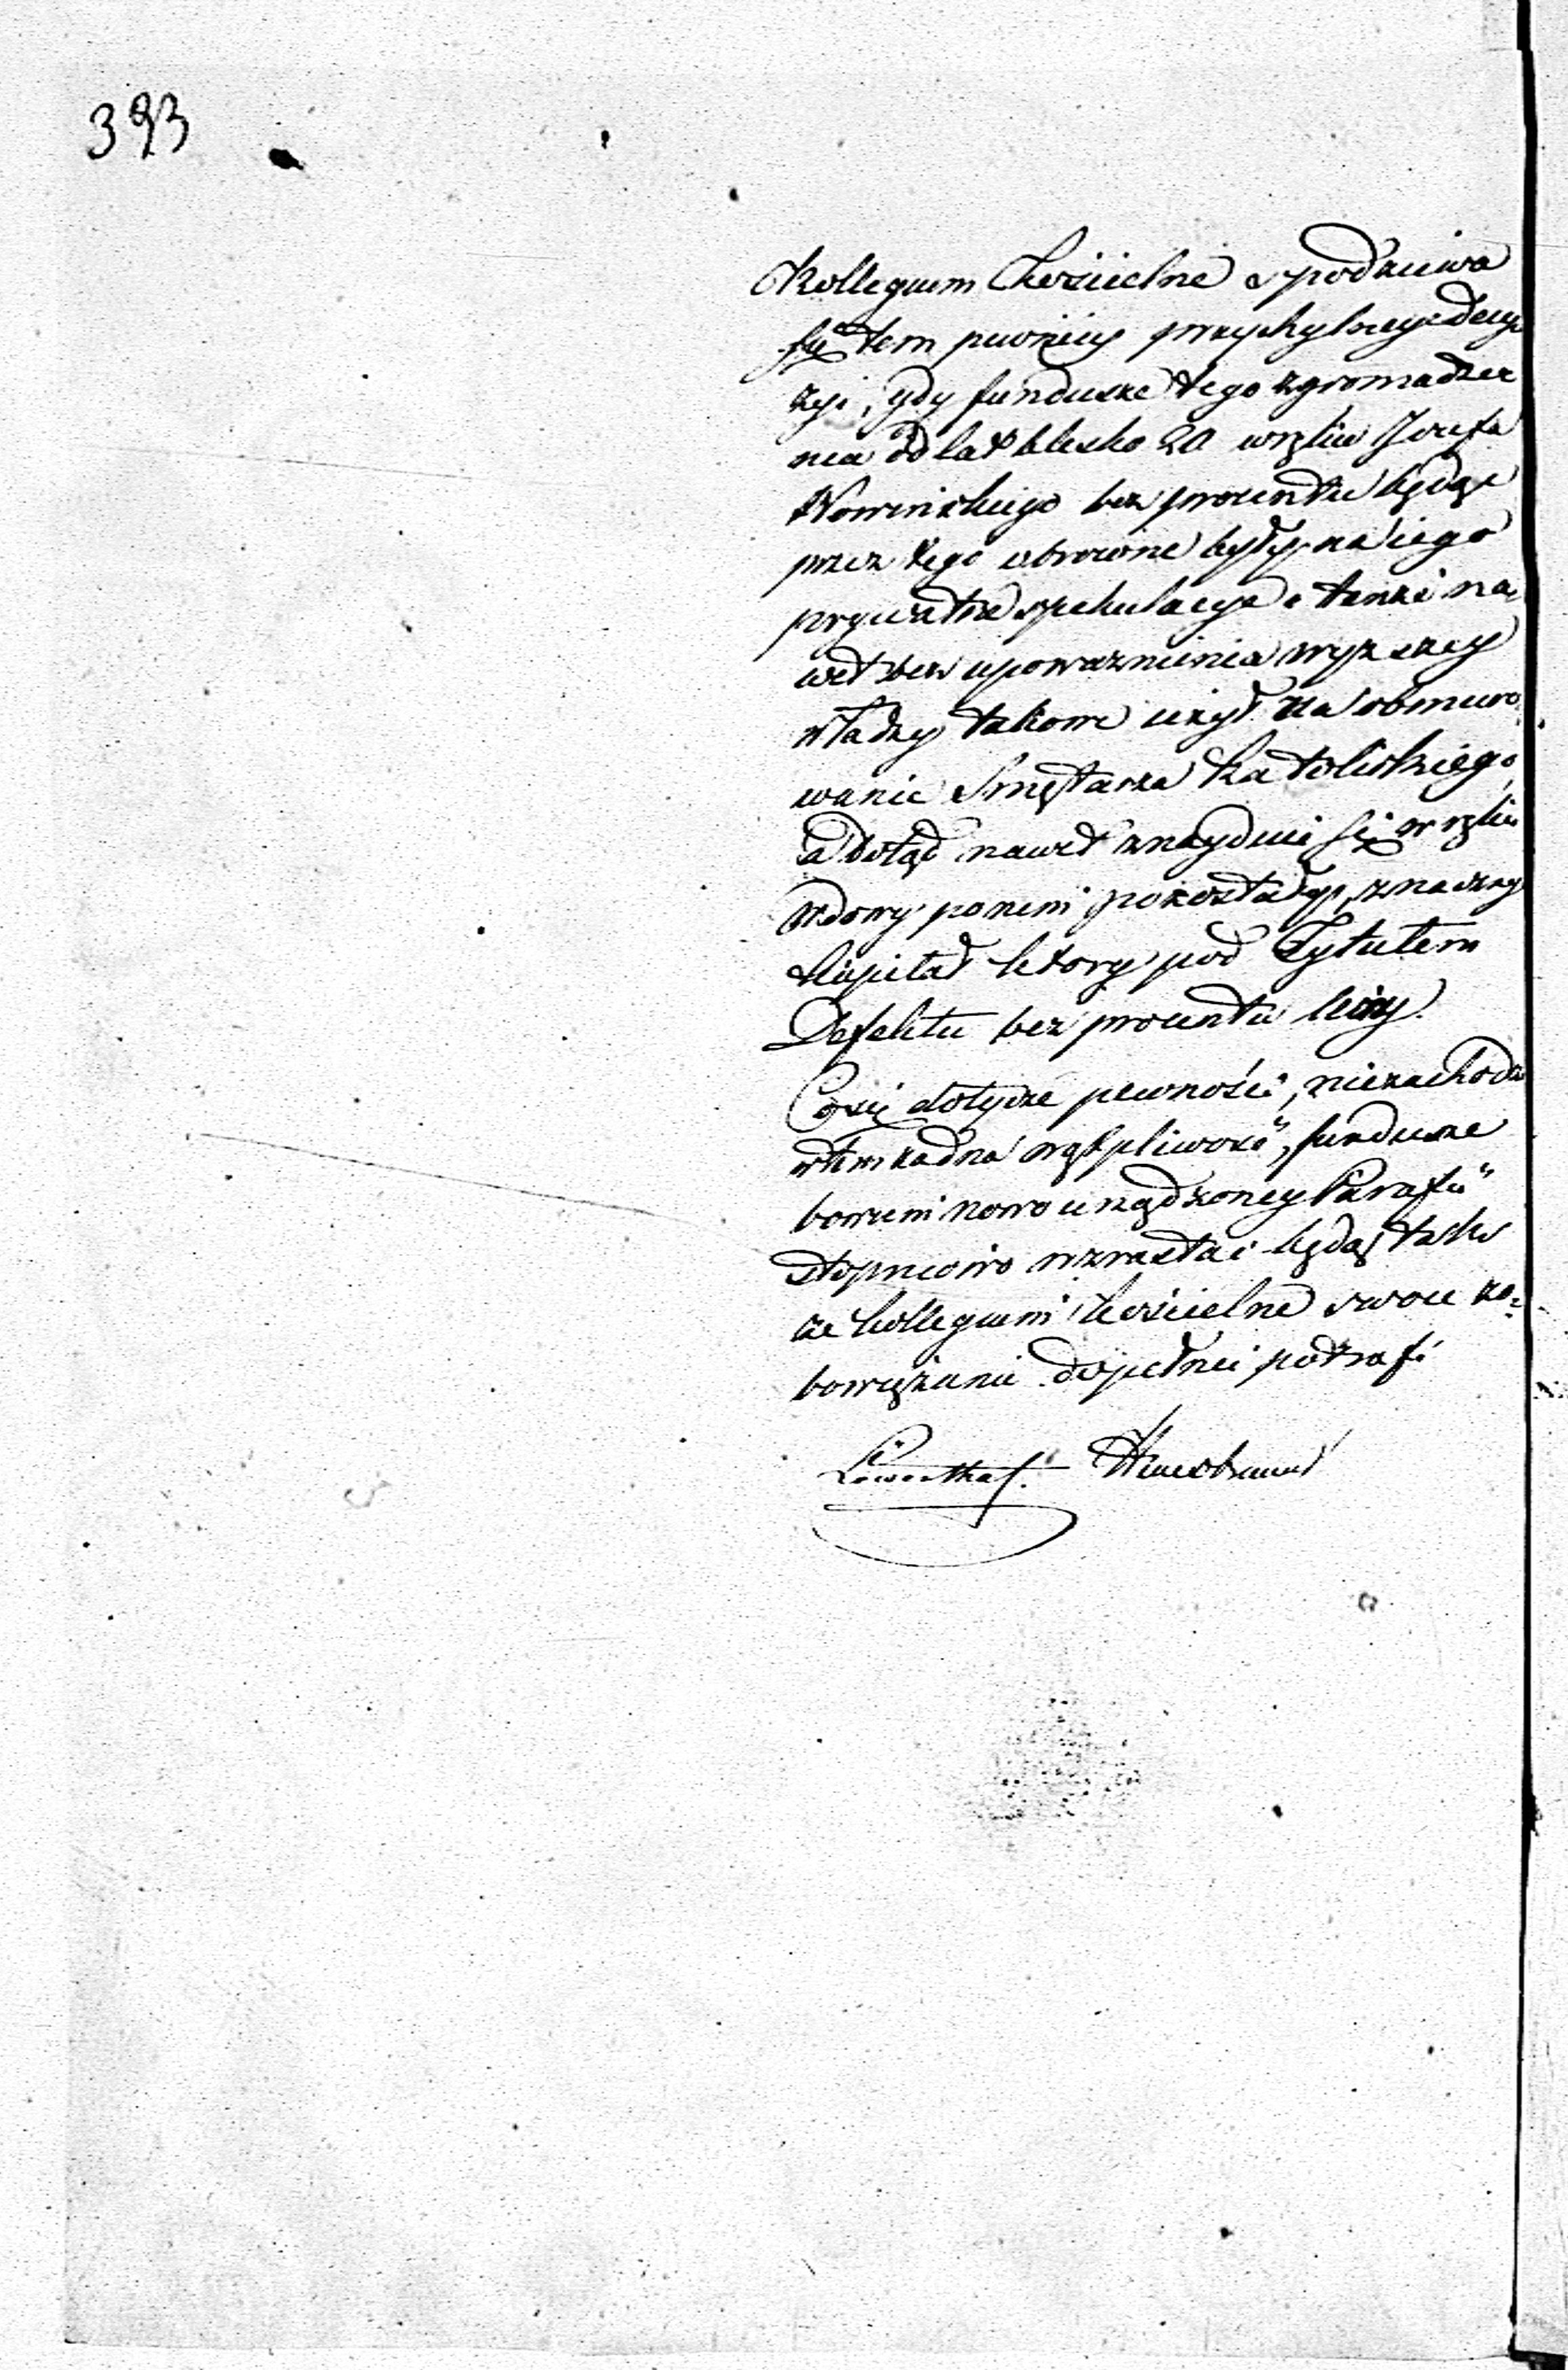 393
Kollegium Kościelne spodziewa
się tem pewniey przychylney decy
zyi, gdy fundusze tego zgromadze
nia od lat blisko 20 w ręku Jozefa
Nowinskiego bez procentu będąc
przez tego obrocone były, na iego
prywatne spekulacye a tenże na,
wet bez upoważnienia wyższey
władzy takowe użył na obmuro
wanie Smętarza Katolickiego,
a dotąd nawet znayduie się w ręku
wdowy po nim pozostałey, znaczny
kapitał ktory pod Tytułem
Defektu bez procentu leży.
Co się dotycze pewności, niezachodzi
w tem żadna wątpliwość, fundusze
bowiem nowo urządzoney Parafii
stopniowo wzrastać będą tak
że kollegium kościelne swoie zo=
bowiązanie dopełnić potrafi